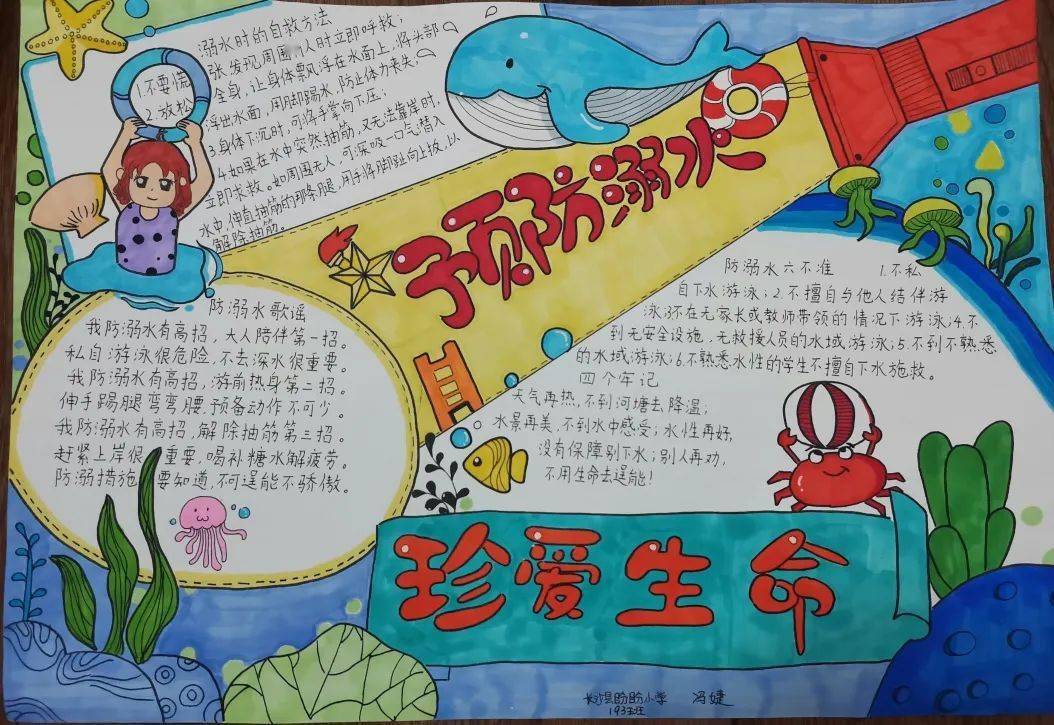 溺水时的自救方法
1.不要慌
张发现周围 人时立即呼救；
2.放松
全身，让身体飘浮在水面上，将头部
浮出水面，用脚踢水，防止体力丧失，
3.身体下沉时，可将手掌向下压；
4.如果在水中突然抽筋，又无法靠岸时，
立即求救。如周围无人，可深吸一口气潜入
水中，伸直抽筋的那条腿，用手将脚趾向上扳，以
解除抽筋。
预防溺水
防溺水六不准 1.不私
自下水游泳；2.不擅自与他人结伴游
泳；3不在无家长或教师带领的情况下游泳；4.不
到无安全设施，无救援人员的水域游泳；5.不到不熟悉
的水域游泳；6.不熟悉水性的学生不擅自下水施救。
四个牢记
天气再热，不到河塘去降温；
水景再美，不到水中感受；水性再好，
没有保障别下水；别人再劝，
不用生命去逞能！
防溺水歌谣
我防溺水有高招，大人陪伴第一招。
私自游泳很危险，不去深水很重要。
我防溺水有高招，游前热身第二招。
伸手踢腿弯弯腰，预备动作不可少。
我防溺水有高招，解除抽筋第三招。
赶紧上岸很重要，喝补糖水解疲劳。
防溺措施 要知道，不可逞能不骄傲。
珍爱生命
长沙县盼盼小学 冯婕
193班